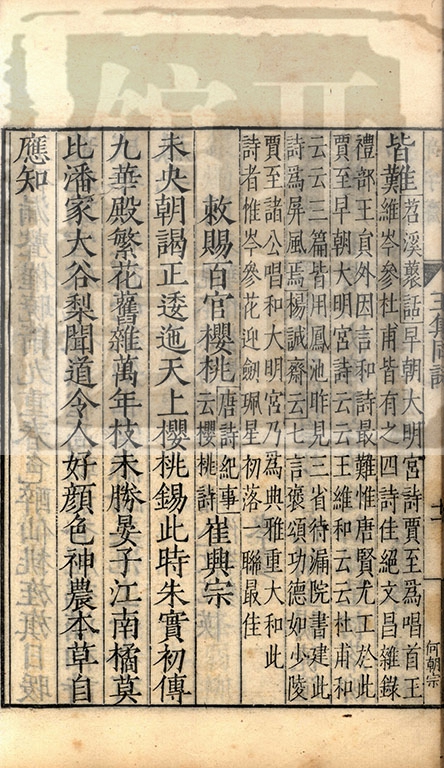 皆難苕溪藂話早朝大明宮詩賈至為唱首王
維岑參杜甫皆有之四詩佳絕文昌雜錄
禮部王員外因言和詩最難惟唐賢尤工於此
賈至早朝大明宮詩云云王維和云云杜甫和
云云三篇皆用鳳池昨見三省待漏院書建此
詩為屏風焉楊誠齋云七言褒頌功德如少陵
賈至諸公唱和大明宮乃為典雅重大和此
詩者惟岑參花迎劍珮星初落一聯最佳
敕賜百官櫻桃唐詩紀事云櫻桃詩崔興宗
未央朝謁正逶迤天上櫻桃錫此時朱實初傳
九華殿繁花舊雜萬年枝未勝晏子江南橘莫
比潘家大谷梨聞道令人好顏色神農本草自
應知
何朝宗